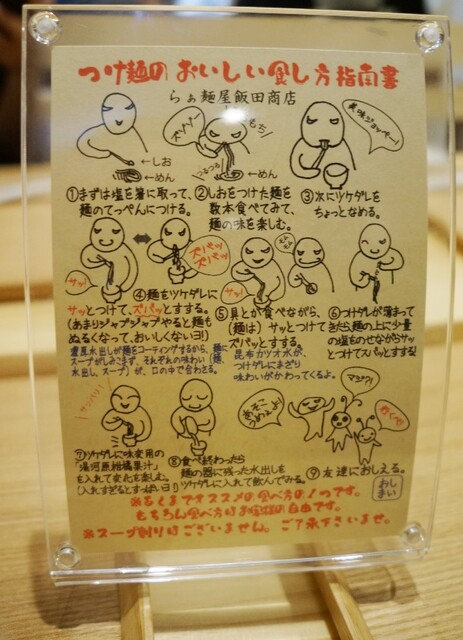 つけ麺のおいしい食し方指南書
らぁ麺屋飯田商店
ズゾゾ〜
もち
美味ジョッパー!
←しお
←めん
つるつる
←めん
①まずは塩を箸に取って、
麺のてっぺんにつける。
②しおをつけた麺を
数本食べてみて、
麺の味を楽しむ。
③次にツケダレを
ちょっとなめる。
サッ!
ズバッ
ズバッ
サッ!
もぐもぐ
④麺をツケダレに
サッとつけて、ズバッとすする。
(あまりジャブジャブやると麺も
ぬるくなって、おいしくないヨ!)
濃度水出しが麺をコーティングするから、麺に
スープがしみこまず、それぞれの味わい(麺、
水出し、スープ)が、口の中で合わさる。
⑤具とか食べながら、
(麺は)サッとつけて
ズバッとすする。
昆布カツオ水が、
つけダレにまざり
味わいがかわってくるよ。
⑥つけダレが薄まって
きたら麺の上に少量
の塩をのせながらサッ
とつけてズバッとすする!
サッパリ!
あそこ
うめぇよ!
マジか?!
行くべ
⑦ツケダレに味変用の
「湯河原柑橘果汁」
を入れて変化を楽しむ。
(入れすぎるとすっぱいヨ!)
⑧食べ終わったら
麺の器に残った水出しを
ツケダレに入れて飲んでみる。
⑨友達におしえる。
おしまい
※あくまでオススメの食べ方の1つです。
もちろん食べ方はお客様の自由です。
※スープ割りはございません。ご了承下さいませ。